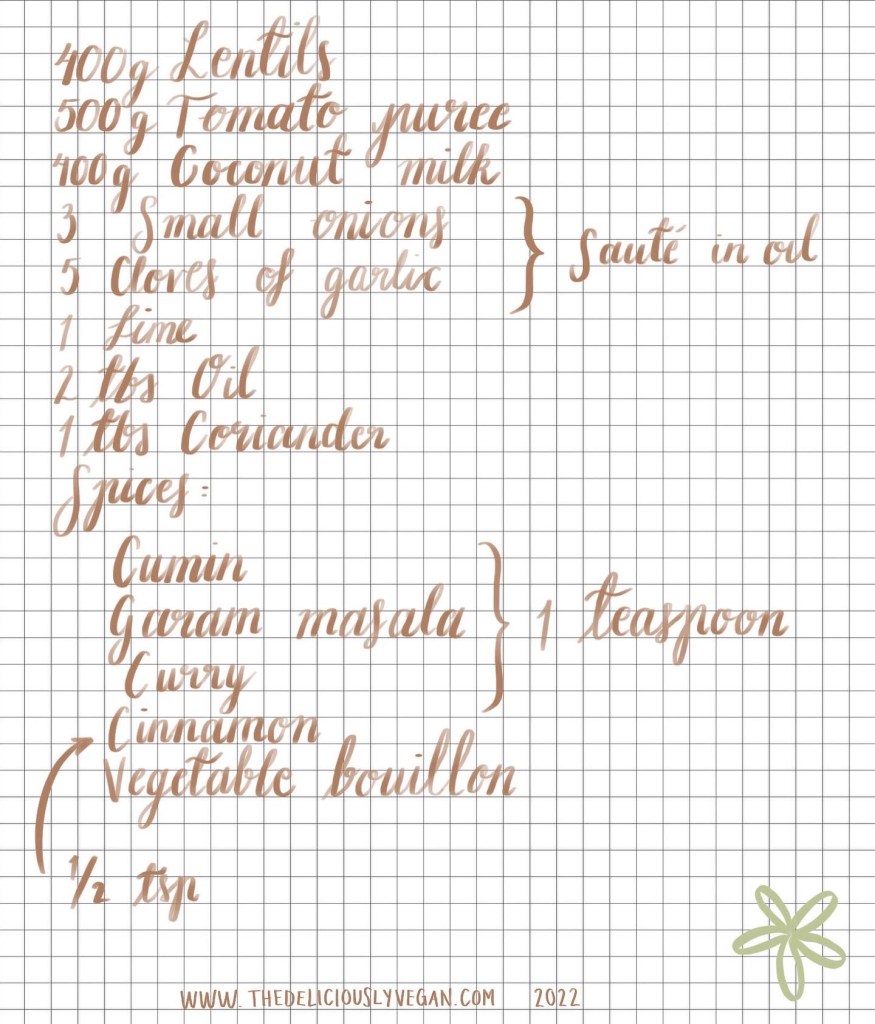 400g Lentils
500g Tomato puree
400g Coconut milk
3 Small onions
5 Cloves of garlic
} Sauté in oil
1 Lime
2 tbs Oil
1 tbs Coriander
Spices:
Cumin
Garam masala
Curry
} 1 teaspoon
Cinnamon
Vegetable bouillon
1/2 tsp
WWW.THEDELICIOUSLYVEGAN.COM 2022